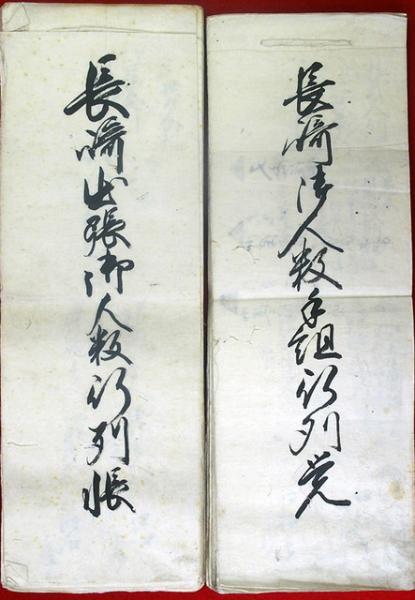 長崎御人数手組行列覚
長崎出張御人数行列帳